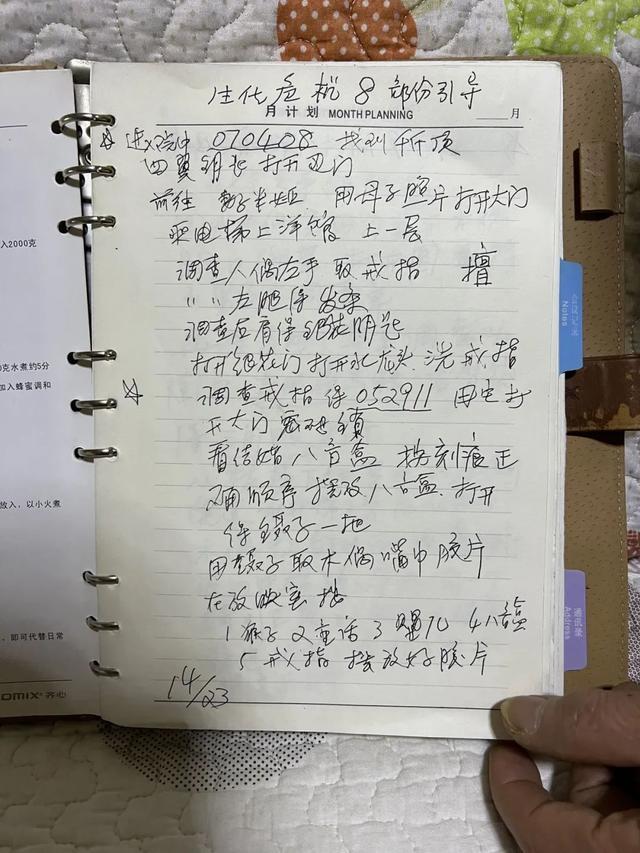 生化危机8 部份引导
月计划 MONTH PLANNING 月
进入院中 070408 找到 祈顶
四翼钥匙 打开边门
前往 用母子照片打开大门
乘电梯上洋馆 上一层
调查人偶左手 取戒指
〃 〃 左腿得发条
调查后背得银花钥匙
打开银花门 打开水龙头 洗戒指
调查戒指得 052911 用它打
开大门密码锁
看结婚八音盒 按刻痕正
确顺序摆放八音盒 打开
得镊子一把
用镊子取木偶嘴中胶片
在放映室按
1猴子 2童话 3婴儿 4八音盒
5戒指 摆放好胶片
14/23
入2000克
0克水煮约5分
加入蜂蜜调和
放入，以小火煮
，即可代替日常
OMIX 齐心
Notes
通讯录
Address